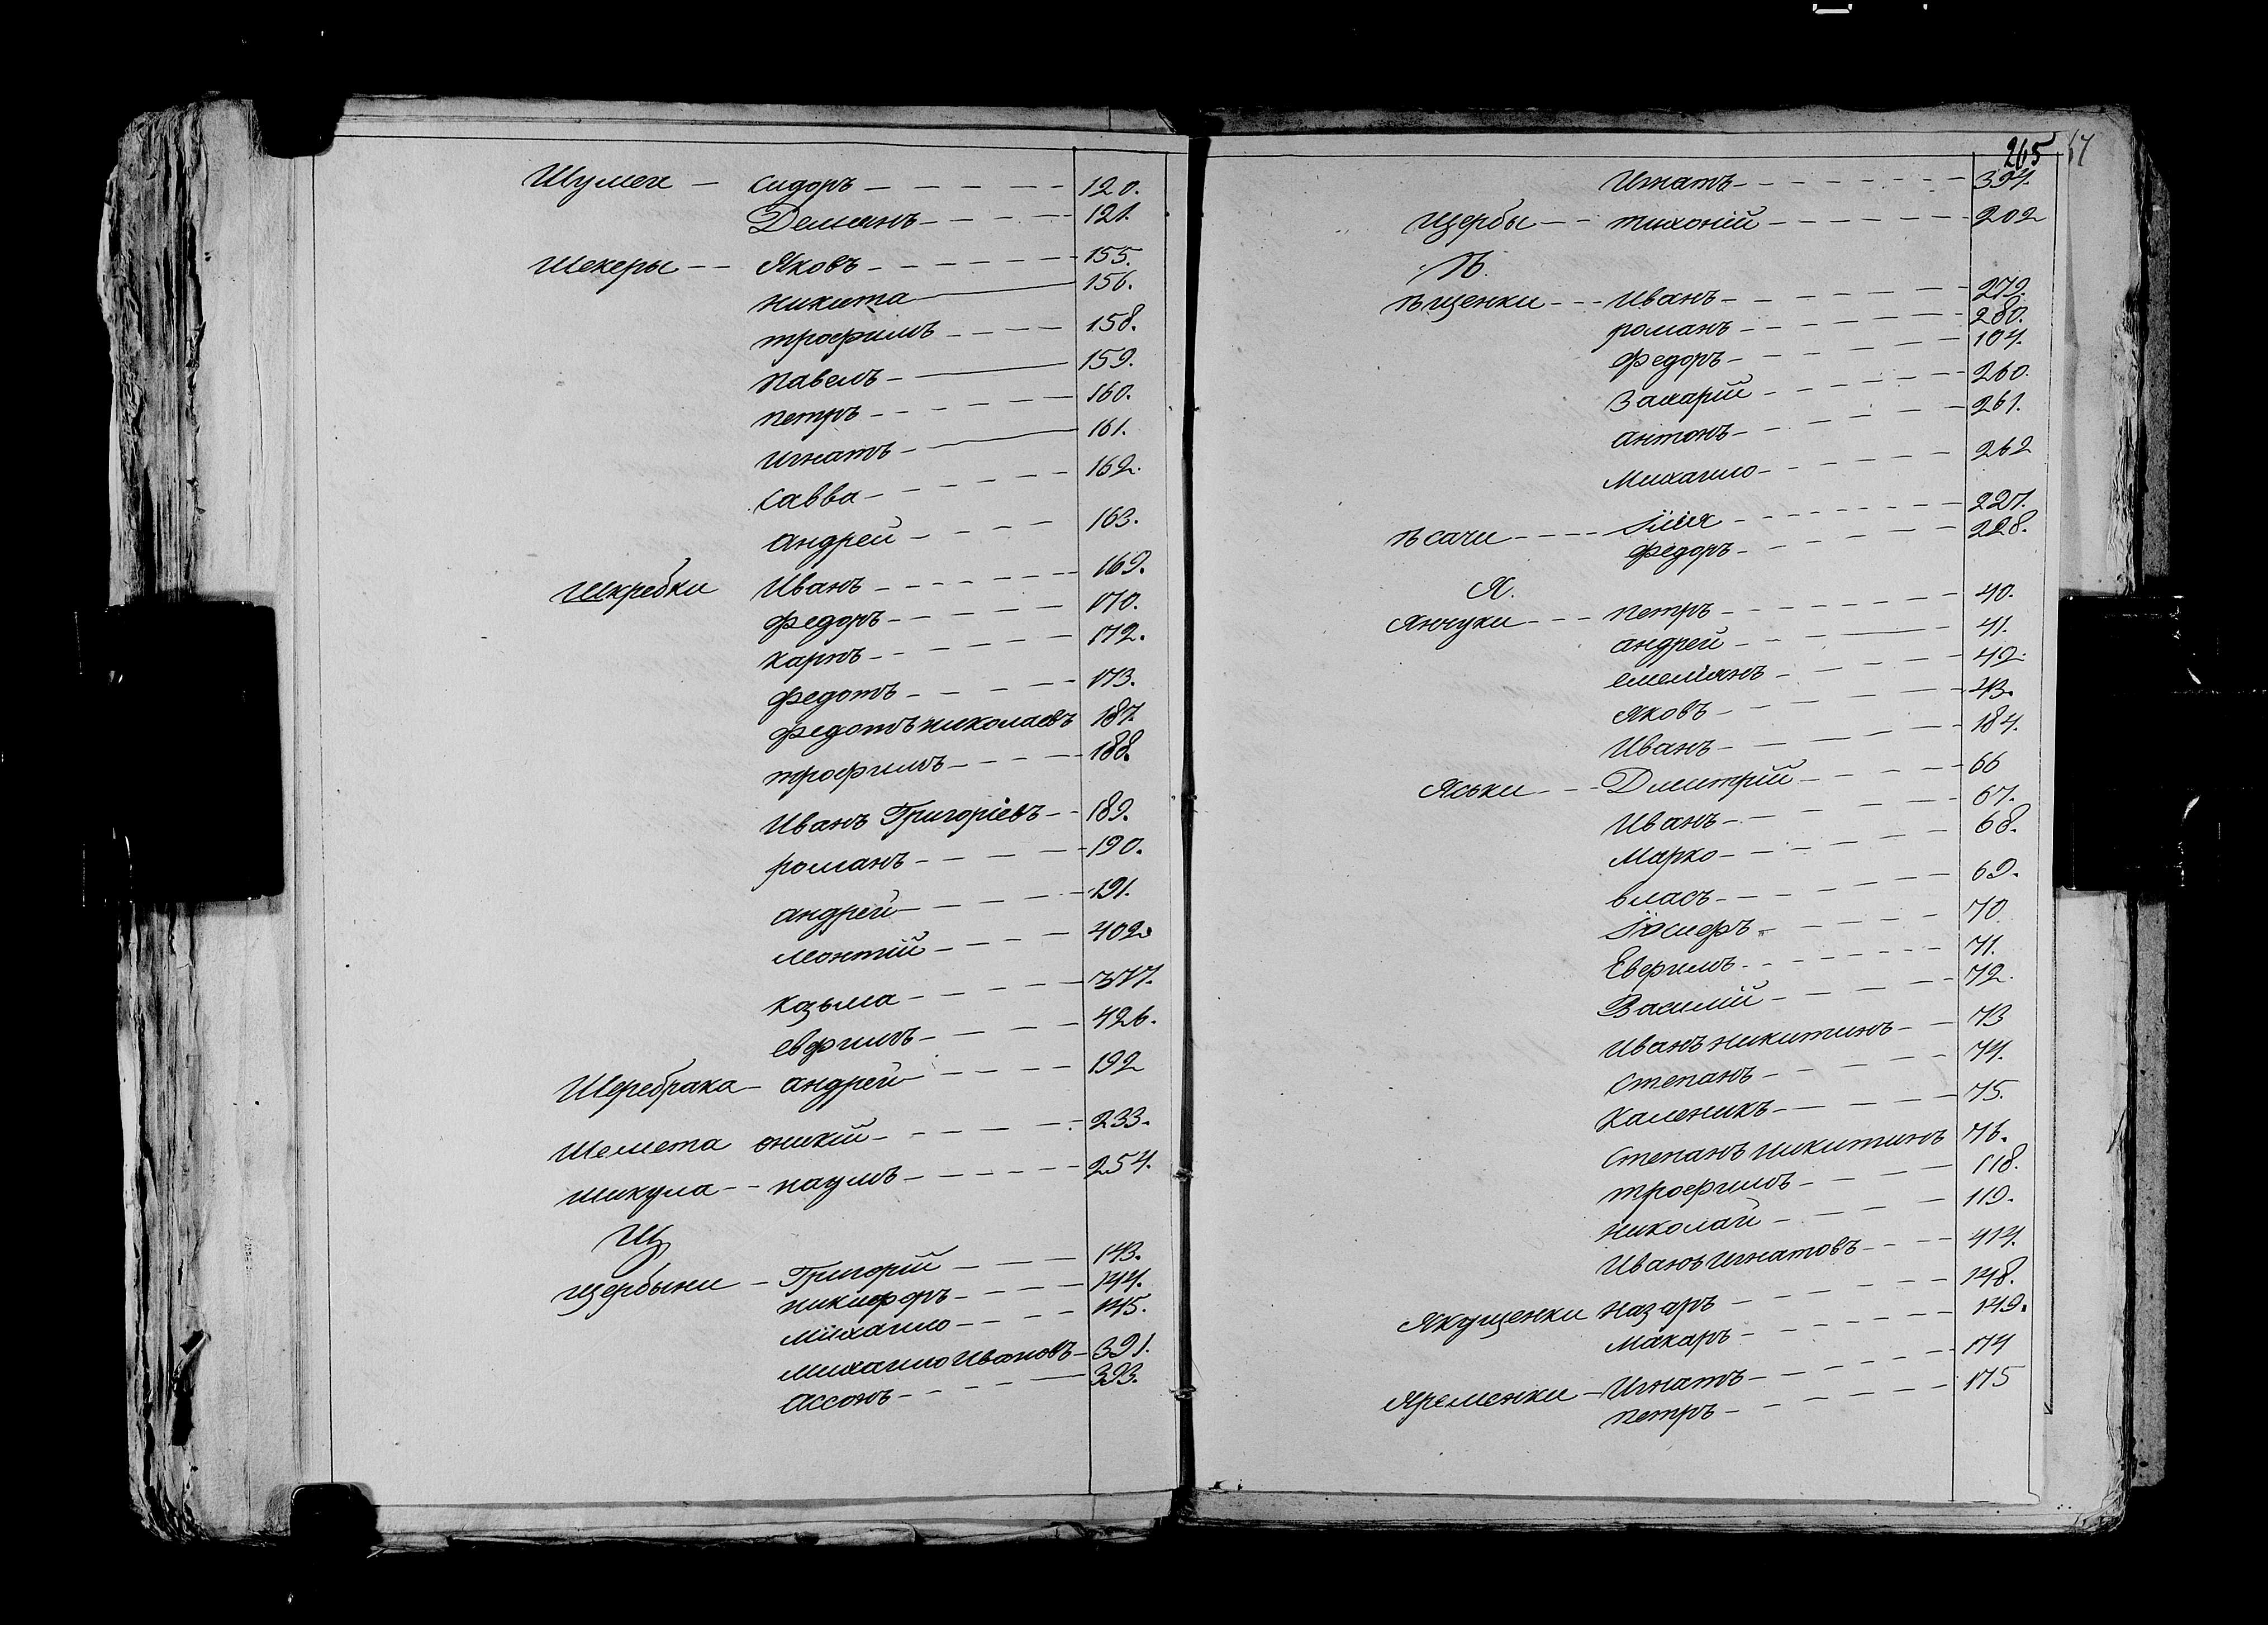 Шумея — Сидоръ — 120.
Демянъ — 121.
Шекеры — Яковъ — 155.
никита — 156.
трофимъ — 158.
павелъ — 159.
петръ — 160.
игнатъ — 161.
Савва — 162.
андрей — 163.
Шкребки Иванъ — 169.
федоръ — 170.
карпъ — 172.
федотъ — 173.
федотъ николаевъ 187.
трофимъ — 188.
Иванъ Григоріевъ — 189.
романъ — 190.
андрей — 191.
леонтій — 402.
Казьма — 377.
евфимъ — 426.
Шеребрака — андрей — 192
Шемета оникій — 233.
шикула — наумъ — 254.
Щ
щербыни — Григорій — 143.
никифоръ — 144.
михаило — 145.
михаило Ивановъ — 391.
Ассонъ — 393.
265
57
Игнатъ — 394.
щербы — тихоній — 202
Ѣ.
ѣщенки — Иванъ — 279.
романъ — 280.
федоръ — 104.
Захарій — 260.
антонъ — 261.
Михаило — 262
ѣсачи — Ілія — 227.
федоръ — 228.
Я.
Янчуки — петръ — 40.
андрей — 41.
емельянъ — 42.
яковъ — 43.
Иванъ — 184.
Яськи — Дмитрій — 66
Иванъ — 67.
Марко — 68.
власъ — 69.
Іосифъ — 70
Евфимъ — 71.
Василій — 72.
Иванъ никитинъ — 73
Степанъ — 74.
Каленикъ — 75.
Степанъ никитинъ 76.
трофимъ — 118.
николай — 119.
Иванъ игнатовъ — 414.
Якущенки назаръ — 148.
макаръ — 149.
Яременки — Игнатъ — 174
петръ — 175